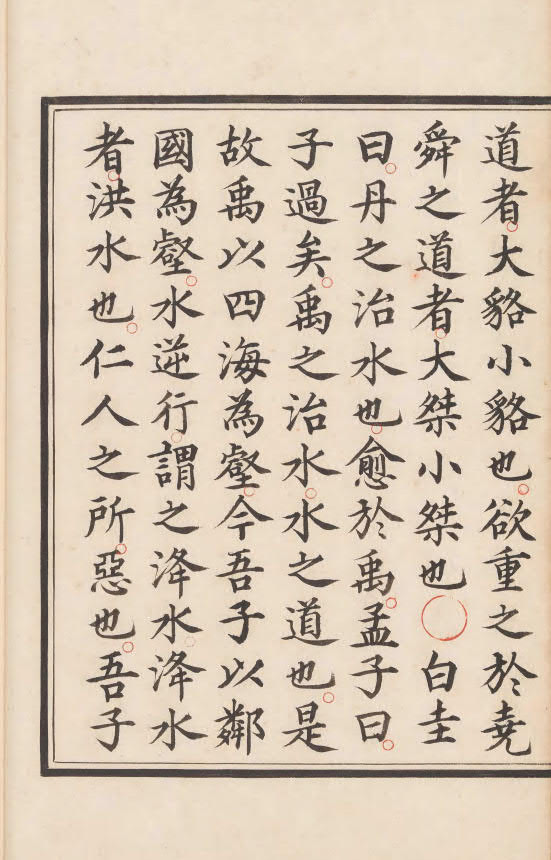 道者。大貉小貉也。欲重之於堯
舜之道者。大桀小桀也〇白圭
曰。丹之治水也。愈於禹。孟子曰。
子過矣。禹之治水。水之道也。是
故禹以四海為壑。今吾子以鄰
國為壑。水逆行。謂之洚水。洚水
者。洪水也。仁人之所。惡也。吾子